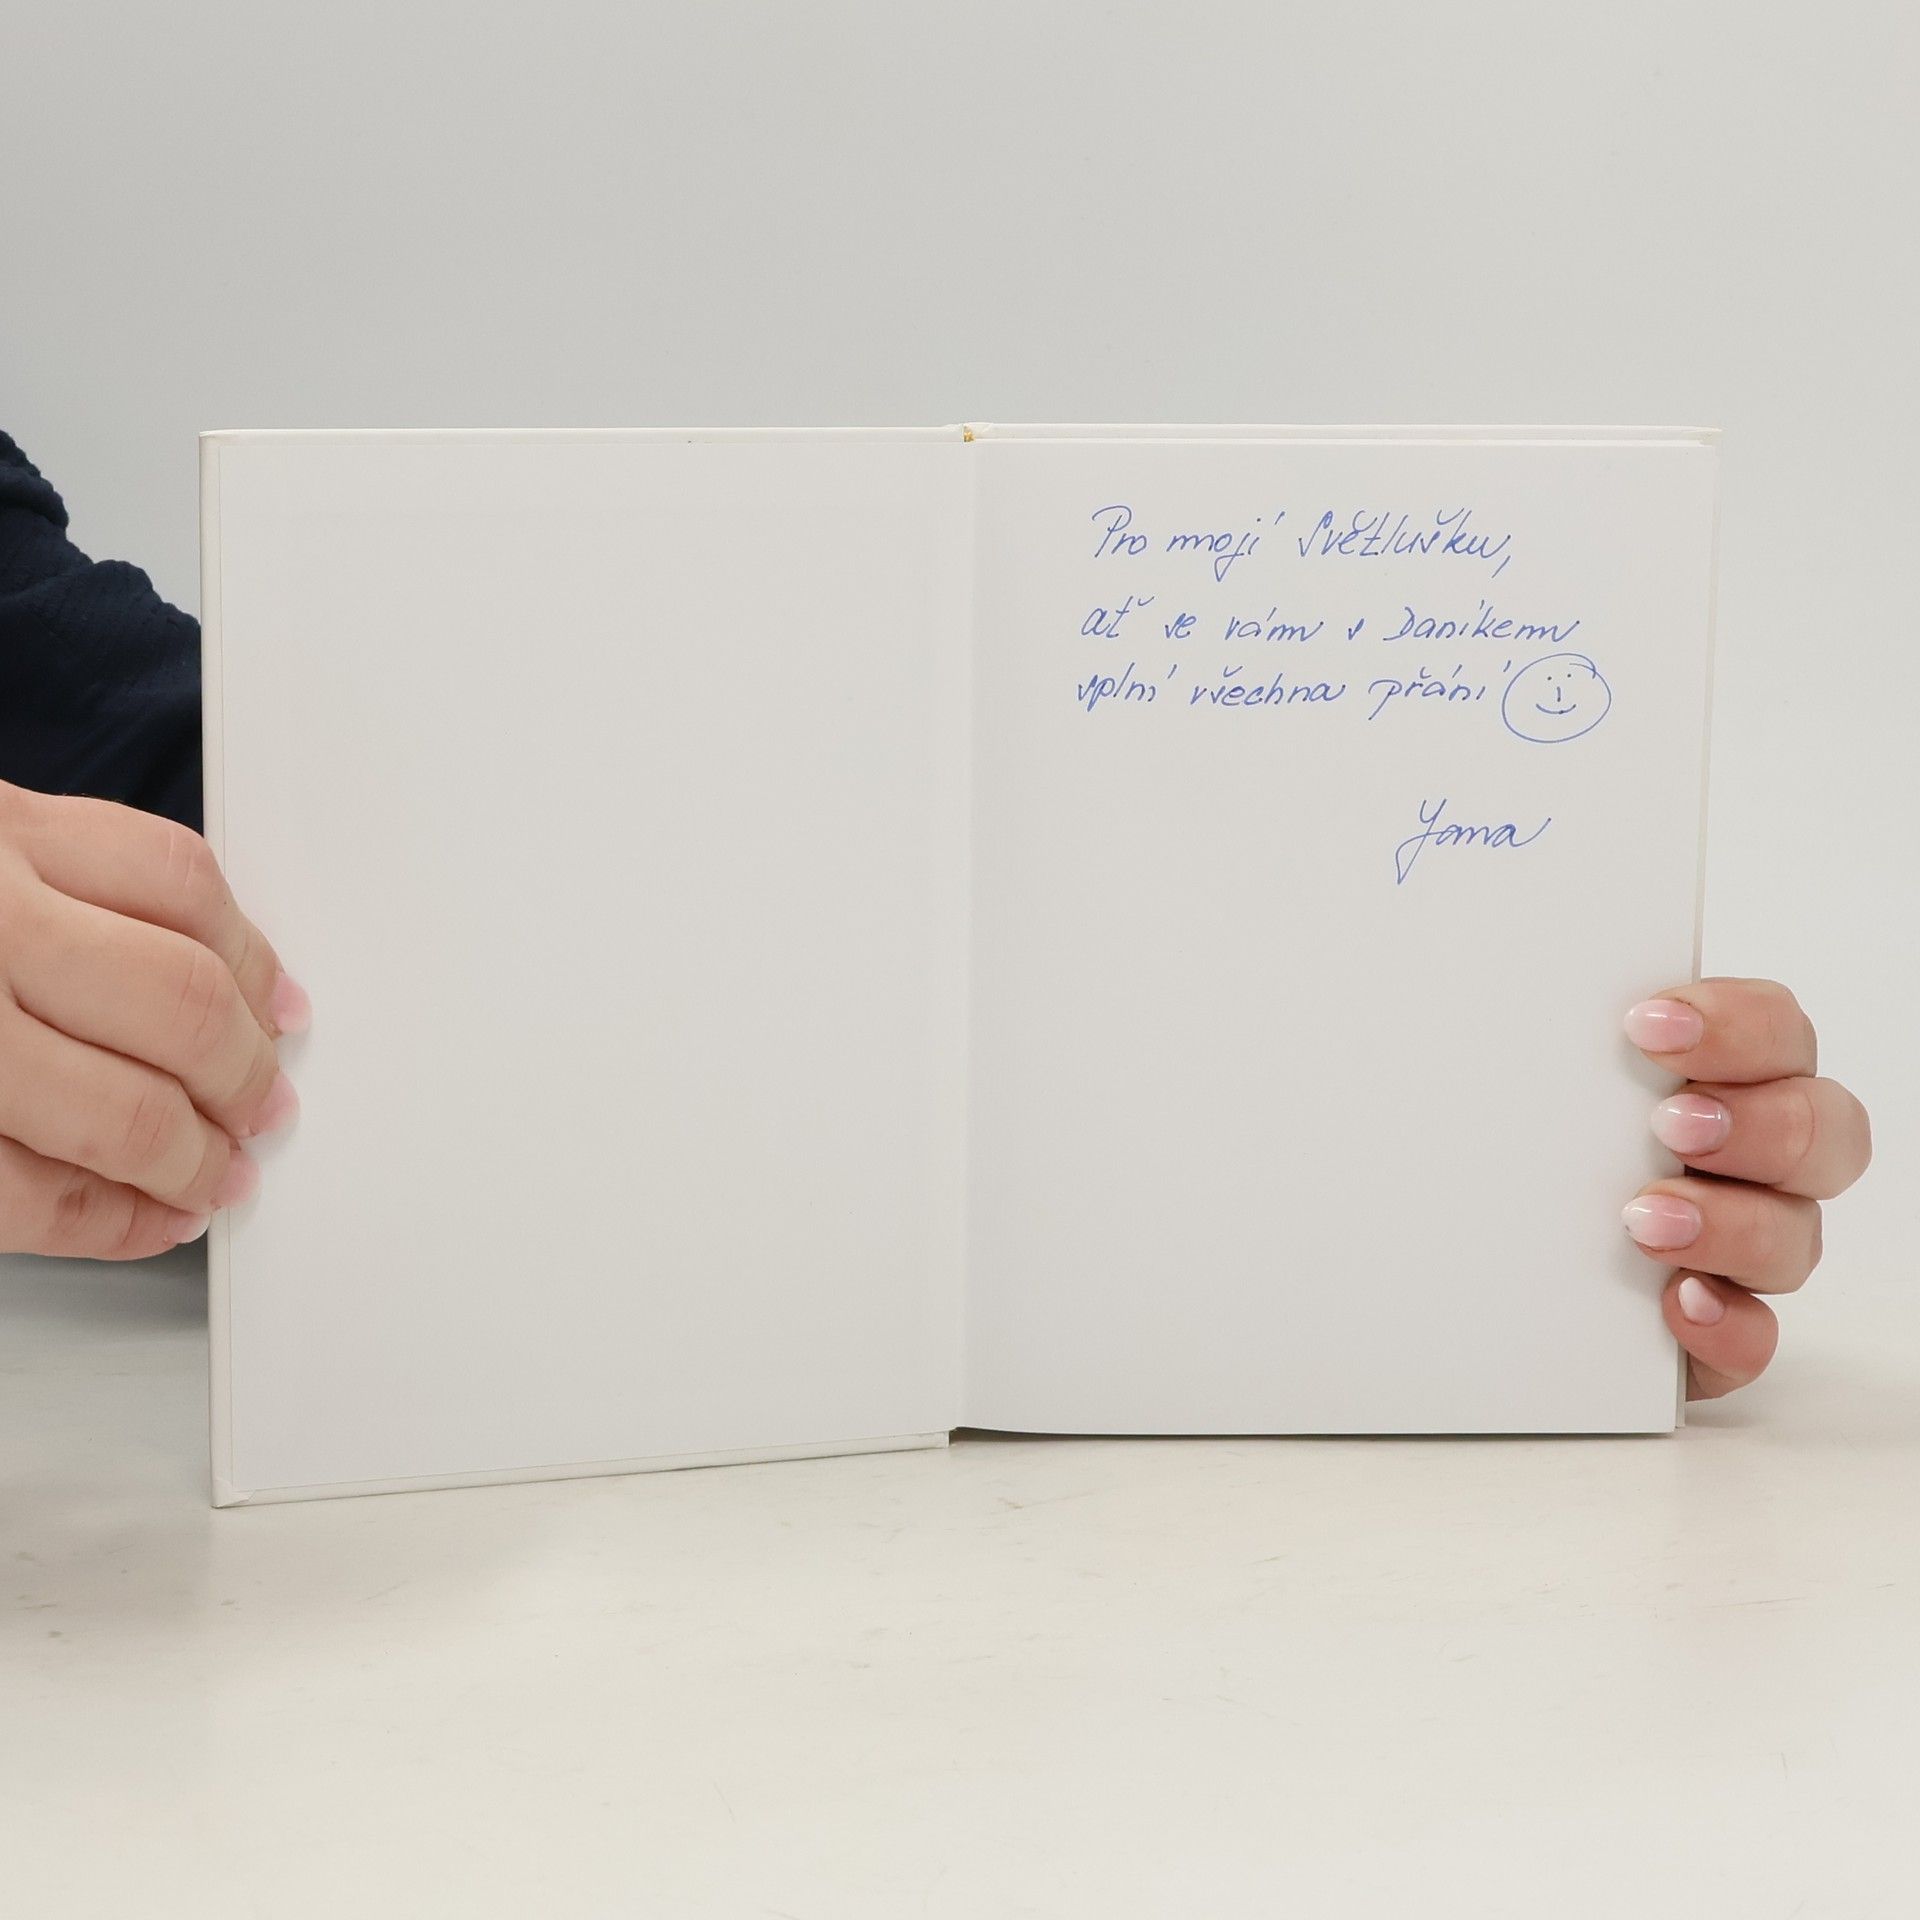 Pro mojí Světlušku,
ať se vám s Daníkem
splní všechna přání
Jana